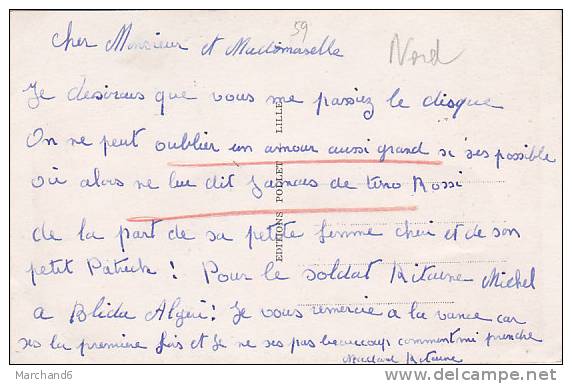 59
Cher Monsieur et Madomaselle
Nord
Je desirais que vous me passiez le disque
On ne peut oublier un amour aussi grand si ses possible
où alors ne lui dit Jamais de tino Rossi
de la part de sa petite femme cheri et de son
petit Patrick ! Pour le soldat Ritaine Michel
a Blida Algeri ! Je vous remercie a la vance car
ses la premiere fois et Je ne ses pas beaucoup comment mi prendre
Madame Ritaine
EDITIONS POLLET LILLE
Marchand6
delcampe.net